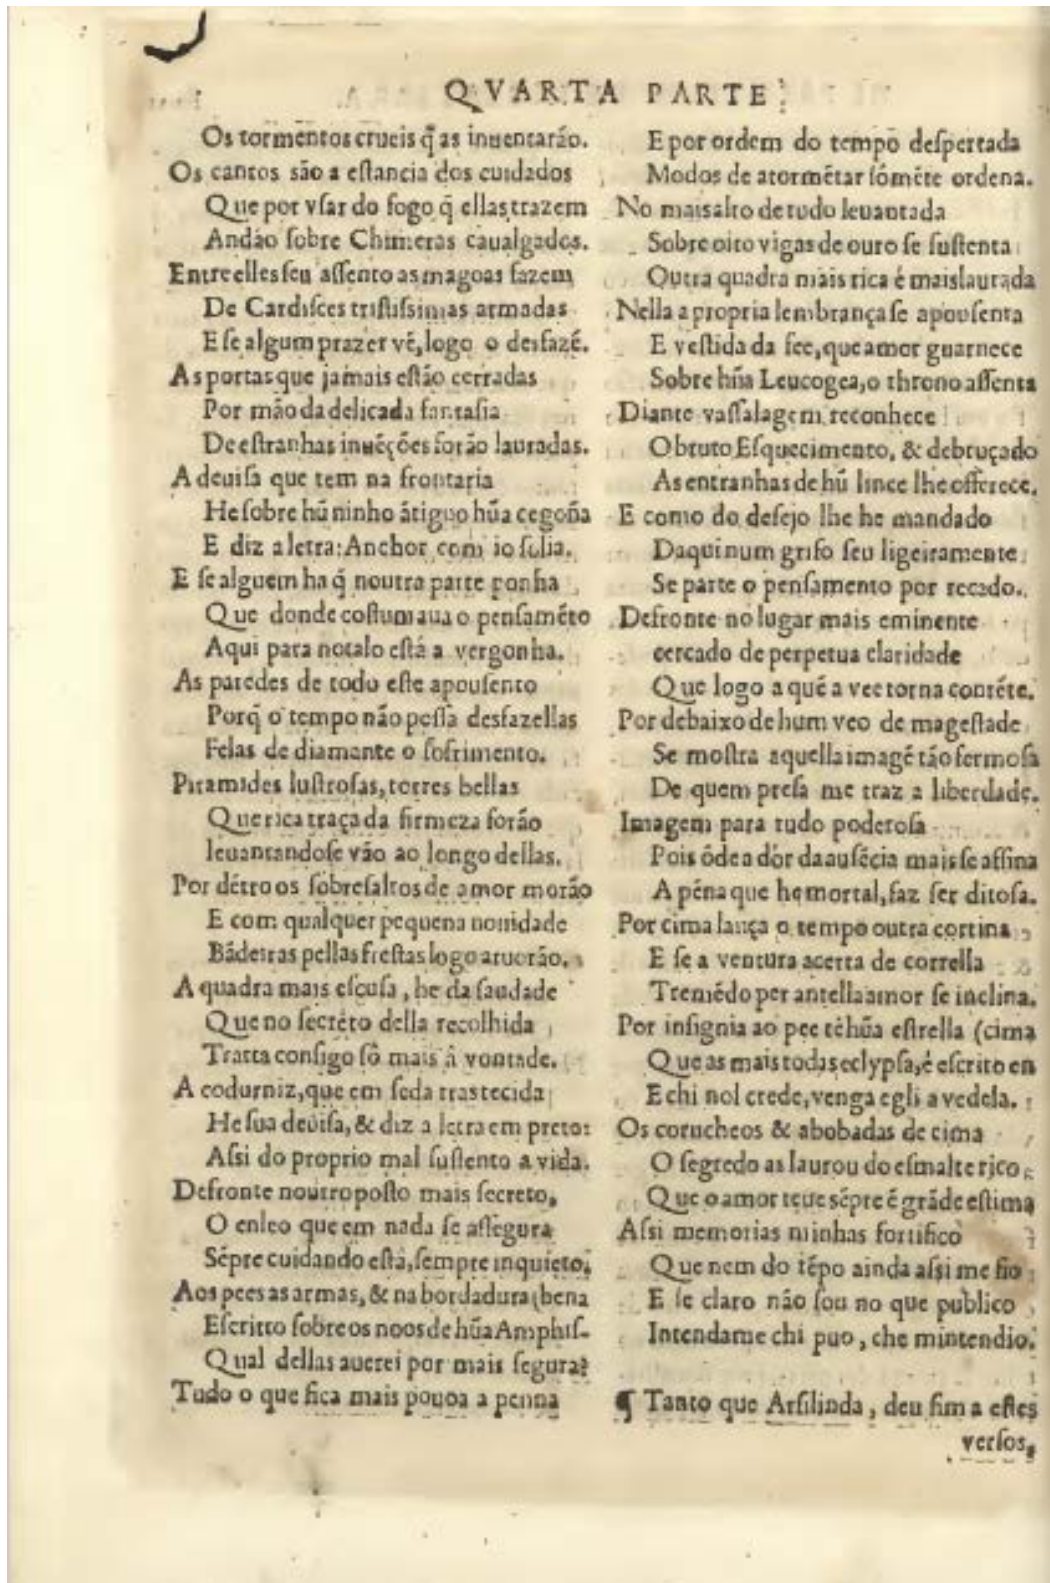 QVARTA PARTE
Os tormentos crueis q̃ as inuentarão.
Os cantos são a eſtancia dos cuidados
Que por vſar do fogo q̃ ellas trazem
Andão ſobre Chimeras caualgados.
Entre elles ſeu aſſento as magoas fazem
De Cardiſces triſtiſsimas armadas
E ſe algum prazer vẽ, logo o desfazẽ.
As portas que jamais eſtão cerradas
Por mão da delicada fantaſia
De eſtranhas inuẽções forão lauradas.
A deuiſa que tem na frontaria
He ſobre hũ ninho ãtiguo hũa cegoña
E diz a letra: Anchor com io ſolia.
E ſe alguem ha q̃ noutra parte ponha
Que donde coſtumaua o penſamẽto
Aqui para notalo eſtá a vergonha.
As paredes de todo eſte apouſento
Porq̃ o tempo não poſſa desfazellas
Felas de diamante o ſofrimento.
Piramides luſtroſas, torres bellas
Que rica traça da firmeza forão
leuantandoſe vão ao longo dellas.
Por dẽtro os ſobreſaltos de amor morão
E com qualquer pequena nouidade
Bãdeiras pellas freſtas logo aruorão.
A quadra mais eſcuſa, he da ſaudade
Que no ſecreto della recolhida
Tratta conſigo ſô mais â vontade.
A codurniz, que em ſeda traſtecida
He ſua deuiſa, & diz a letra em preto:
Aſsi do proprio mal ſuſtento a vida.
Defronte noutro poſto mais ſecreto,
O enleo que em nada ſe aſſegura
Sẽpre cuidando eſtá, ſempre inquieto.
Aos pees as armas, & na bordadura (bena
Eſcritto ſobre os noos de hũa Amphiſ-
Qual dellas auerei por mais ſegura?
Tudo o que fica mais pouoa a penna
E por ordem do tempo deſpertada
Modos de atormẽtar ſómẽte ordena.
No mais alto de tudo leuantada
Sobre oito vigas de ouro ſe ſuſtenta
Outra quadra mais rica é mais laurada
Nella a propria lembrança ſe apouſenta
E veſtida da fee, que amor guarnece
Sobre hũa Leucogea, o throno aſſenta
Diante vaſſalagem reconhece
O bruto Eſquecimento, & debruçado
As entranhas de hũ lince lhe offerece.
E como do deſejo lhe he mandado
Daqui num grifo ſeu ligeiramente
Se parte o penſamento por recado.
Defronte no lugar mais eminente
cercado de perpetua claridade
Que logo a quẽ a vee torna contẽte.
Por debaixo de hum veo de mageſtade
Se moſtra aquella imagẽ tão fermoſa
De quem preſa me traz a liberdade.
Imagem para tudo poderoſa
Pois õde a dòr da auſẽcia mais ſe aſſina
A péna que he mortal, faz ſer ditoſa.
Por cima lança o tempo outra cortina
E ſe a ventura acerta de corrella
Tremẽdo per antella amor ſe inclina.
Por inſignia ao pee tẽ hũa eſtrella (cima
Que as mais todas eclypſa, é eſcrito en
E chi nol crede, venga egli a vedela.
Os corucheos & abobadas de cima
O ſegredo as laurou do eſmalte rico
Que o amor teue sẽpre ẽ grãde eſtima
Aſsi memorias minhas fortifico
Que nem do tẽpo ainda aſsi me fio
E ſe claro não ſou no que publico
Intendame chi puo, che mintendio.
¶ Tanto que Arſilinda, deu fim a eſtes
verſos,